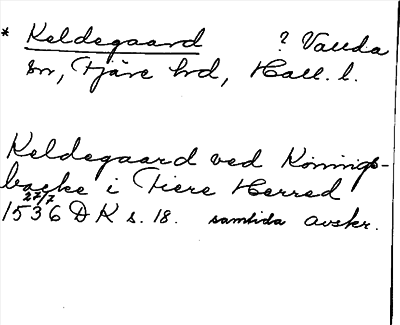 * Keldegaard ? Valda
sn, Fjäre hrd, Hall. l.
Keldegaard ved Konings-
backe i Fiere Herred
1536 27/7 DK s. 18. samtida avskr.